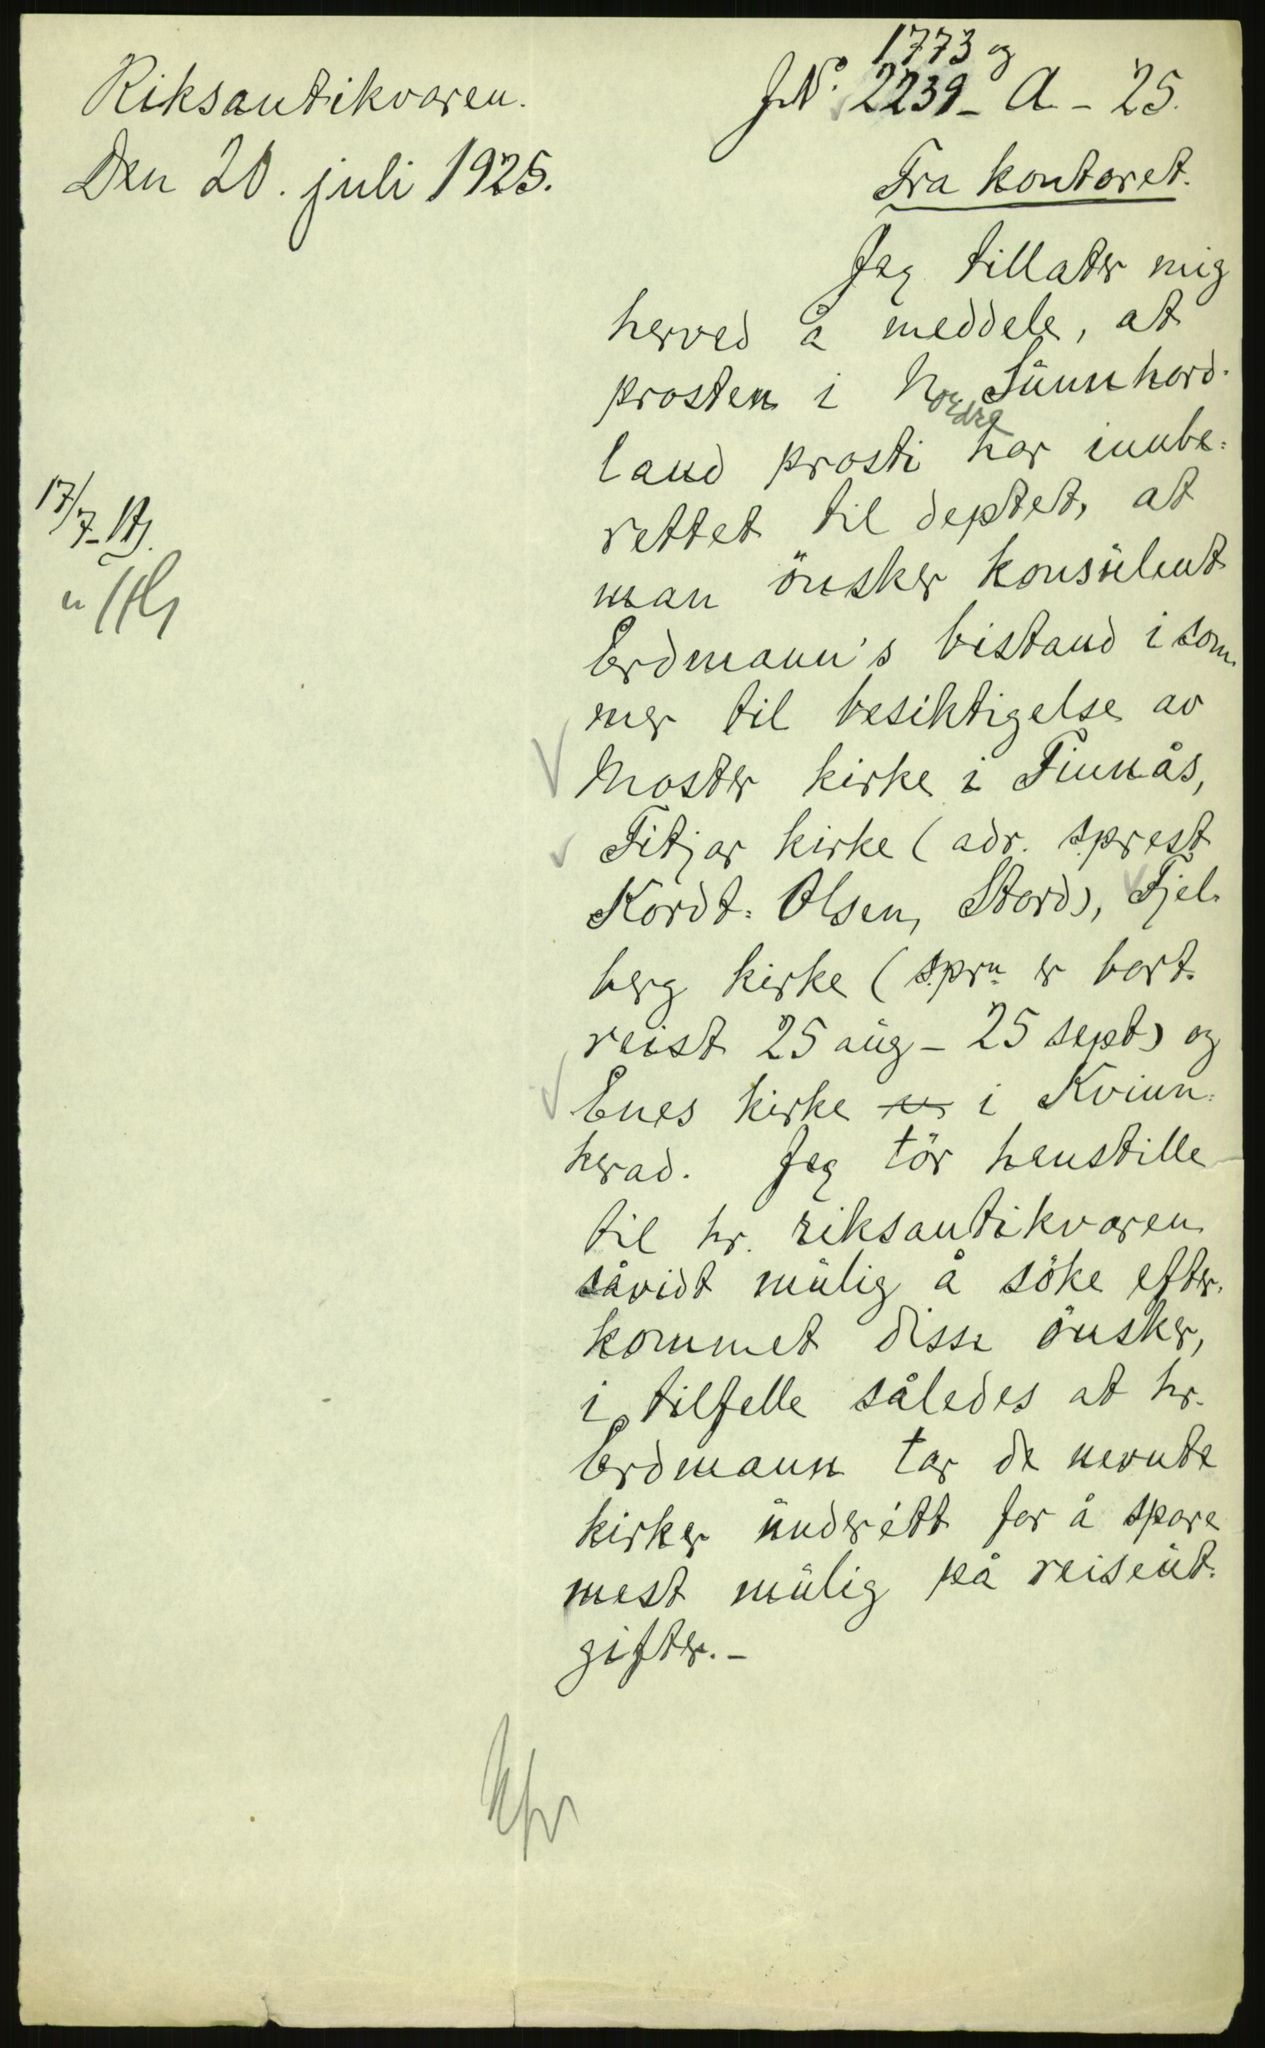 Riksantikvaren.
Den 20. juli 1925.
1773 og
J.Nº. 2239 - A - 25.
Fra kontoret.
Jeg tillater mig
herved å meddele, at
prosten i Nordre Sunnhord-
land prosti har innbe-
rettet til deptet, at
man önsker konsulent
Erdmann's bistand i som-
mer til besiktigelse av
Moster kirke i Finnås,
Fitjar kirke (adr. sprest
Kordt-Olsen, Stord), Fjel-
berg kirke (sprn er bort-
reist 25 aug - 25 sept) og
Enes kirke i Kvinn-
herad. Jeg tör henstille
til hr. riksantikvaren
såvidt mulig å söke efter-
kommet disse önsker,
i tilfelle således at hr.
Erdmann tar de nevnte
kirker underétt for å spare
mest mulig på reiseut-
gifter. -
17/7